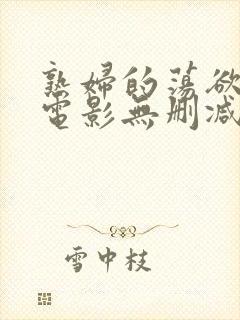 熟婦的蕩欲
電影無刪減
雪中枝